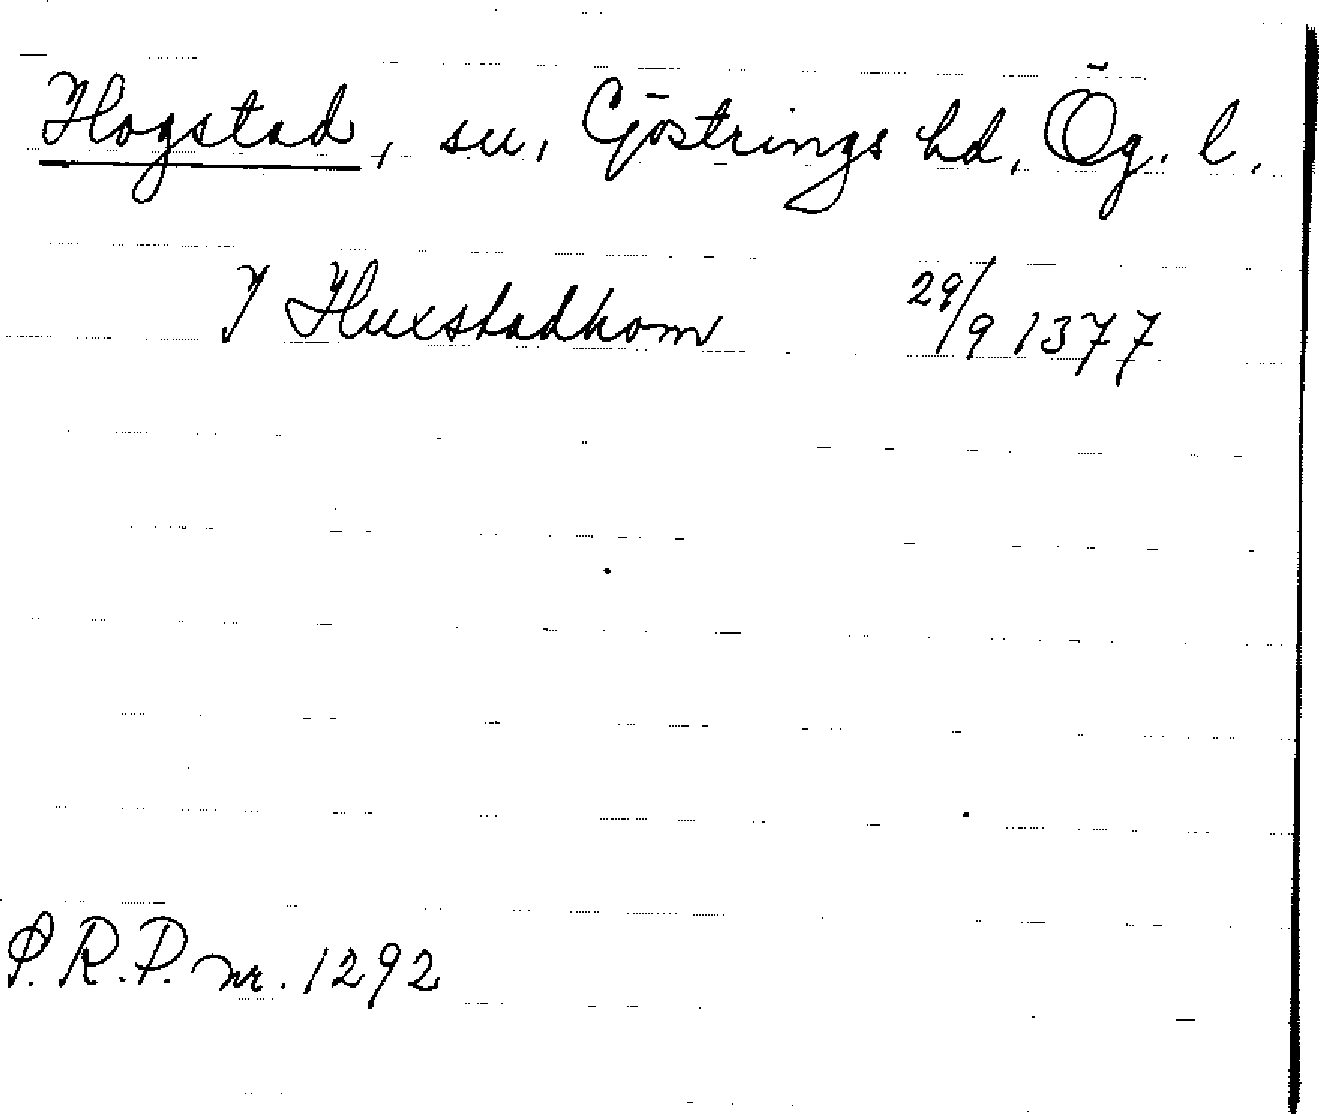 Hogstad, sn, Göstrings hd, Ög. l.
I Huxstadhom 29/9 1377
P.R.P. nr. 1292